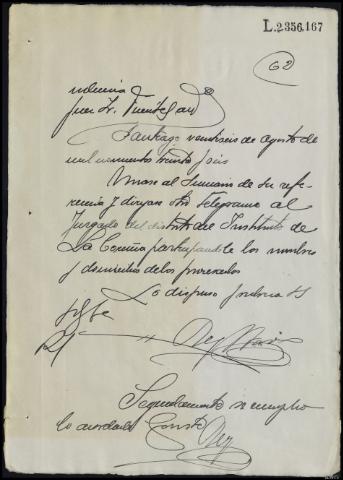 L.2356.167
62
Juez Sr. Fuentes
Santiago veintiseis de agosto de
mil novecientos treinta y seis
Unase al Sumario de su refe-
rencia y dirijase otro telegrama al
Juzgado del distrito del Instituto de
La Coruña participandole los nombres
y domicilios de los procesados
Lo dispuso y rubrica SS
Seguidamente se cumplio
lo acordado Consta